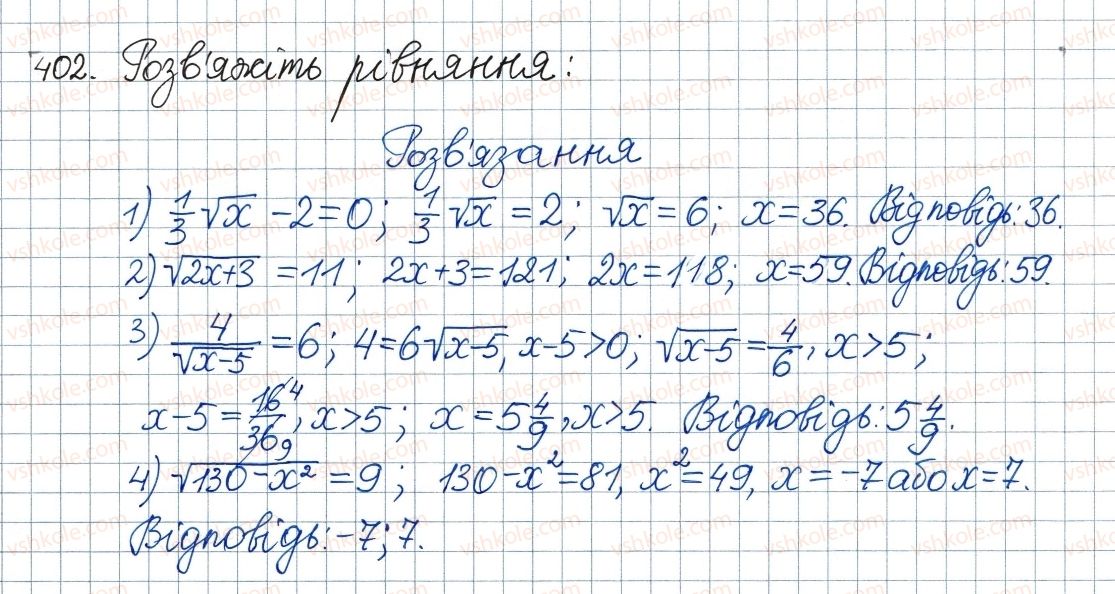 402. Розв'яжіть рівняння:
Розв'язання
1) 1/3 √x - 2 = 0; 1/3 √x = 2; √x = 6; x = 36. Відповідь: 36.
2) √(2x+3) = 11; 2x+3 = 121; 2x = 118; x = 59. Відповідь: 59.
3) 4/√(x-5) = 6; 4 = 6√(x-5), x-5 > 0; √(x-5) = 4/6, x > 5;
x-5 = 16 4/36 9, x > 5; x = 5 4/9, x > 5. Відповідь: 5 4/9.
4) √(130-x²) = 9; 130-x² = 81, x² = 49, x = -7 або x = 7.
Відповідь: -7; 7.